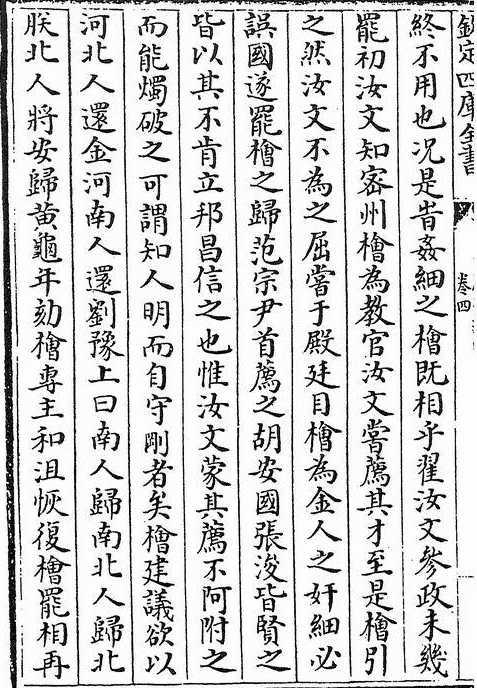 欽定四庫全書
卷四
終不用也况是背姦細之檜既相乎翟汝文參政未幾
罷初汝文知密州檜為教官汝文嘗薦其才至是檜引
之然汝文不為之屈嘗于殿廷目檜為金人之奸細必
誤國遂罷檜之歸范宗尹首薦之胡安國張浚皆賢之
皆以其不肯立邦昌信之也惟汝文蒙其薦不阿附之
而能燭破之可謂知人明而自守剛者矣檜建議欲以
河北人還金河南人還劉豫上曰南人歸南北人歸北
朕北人將安歸黄龜年劾檜專主和沮恢復檜罷相再